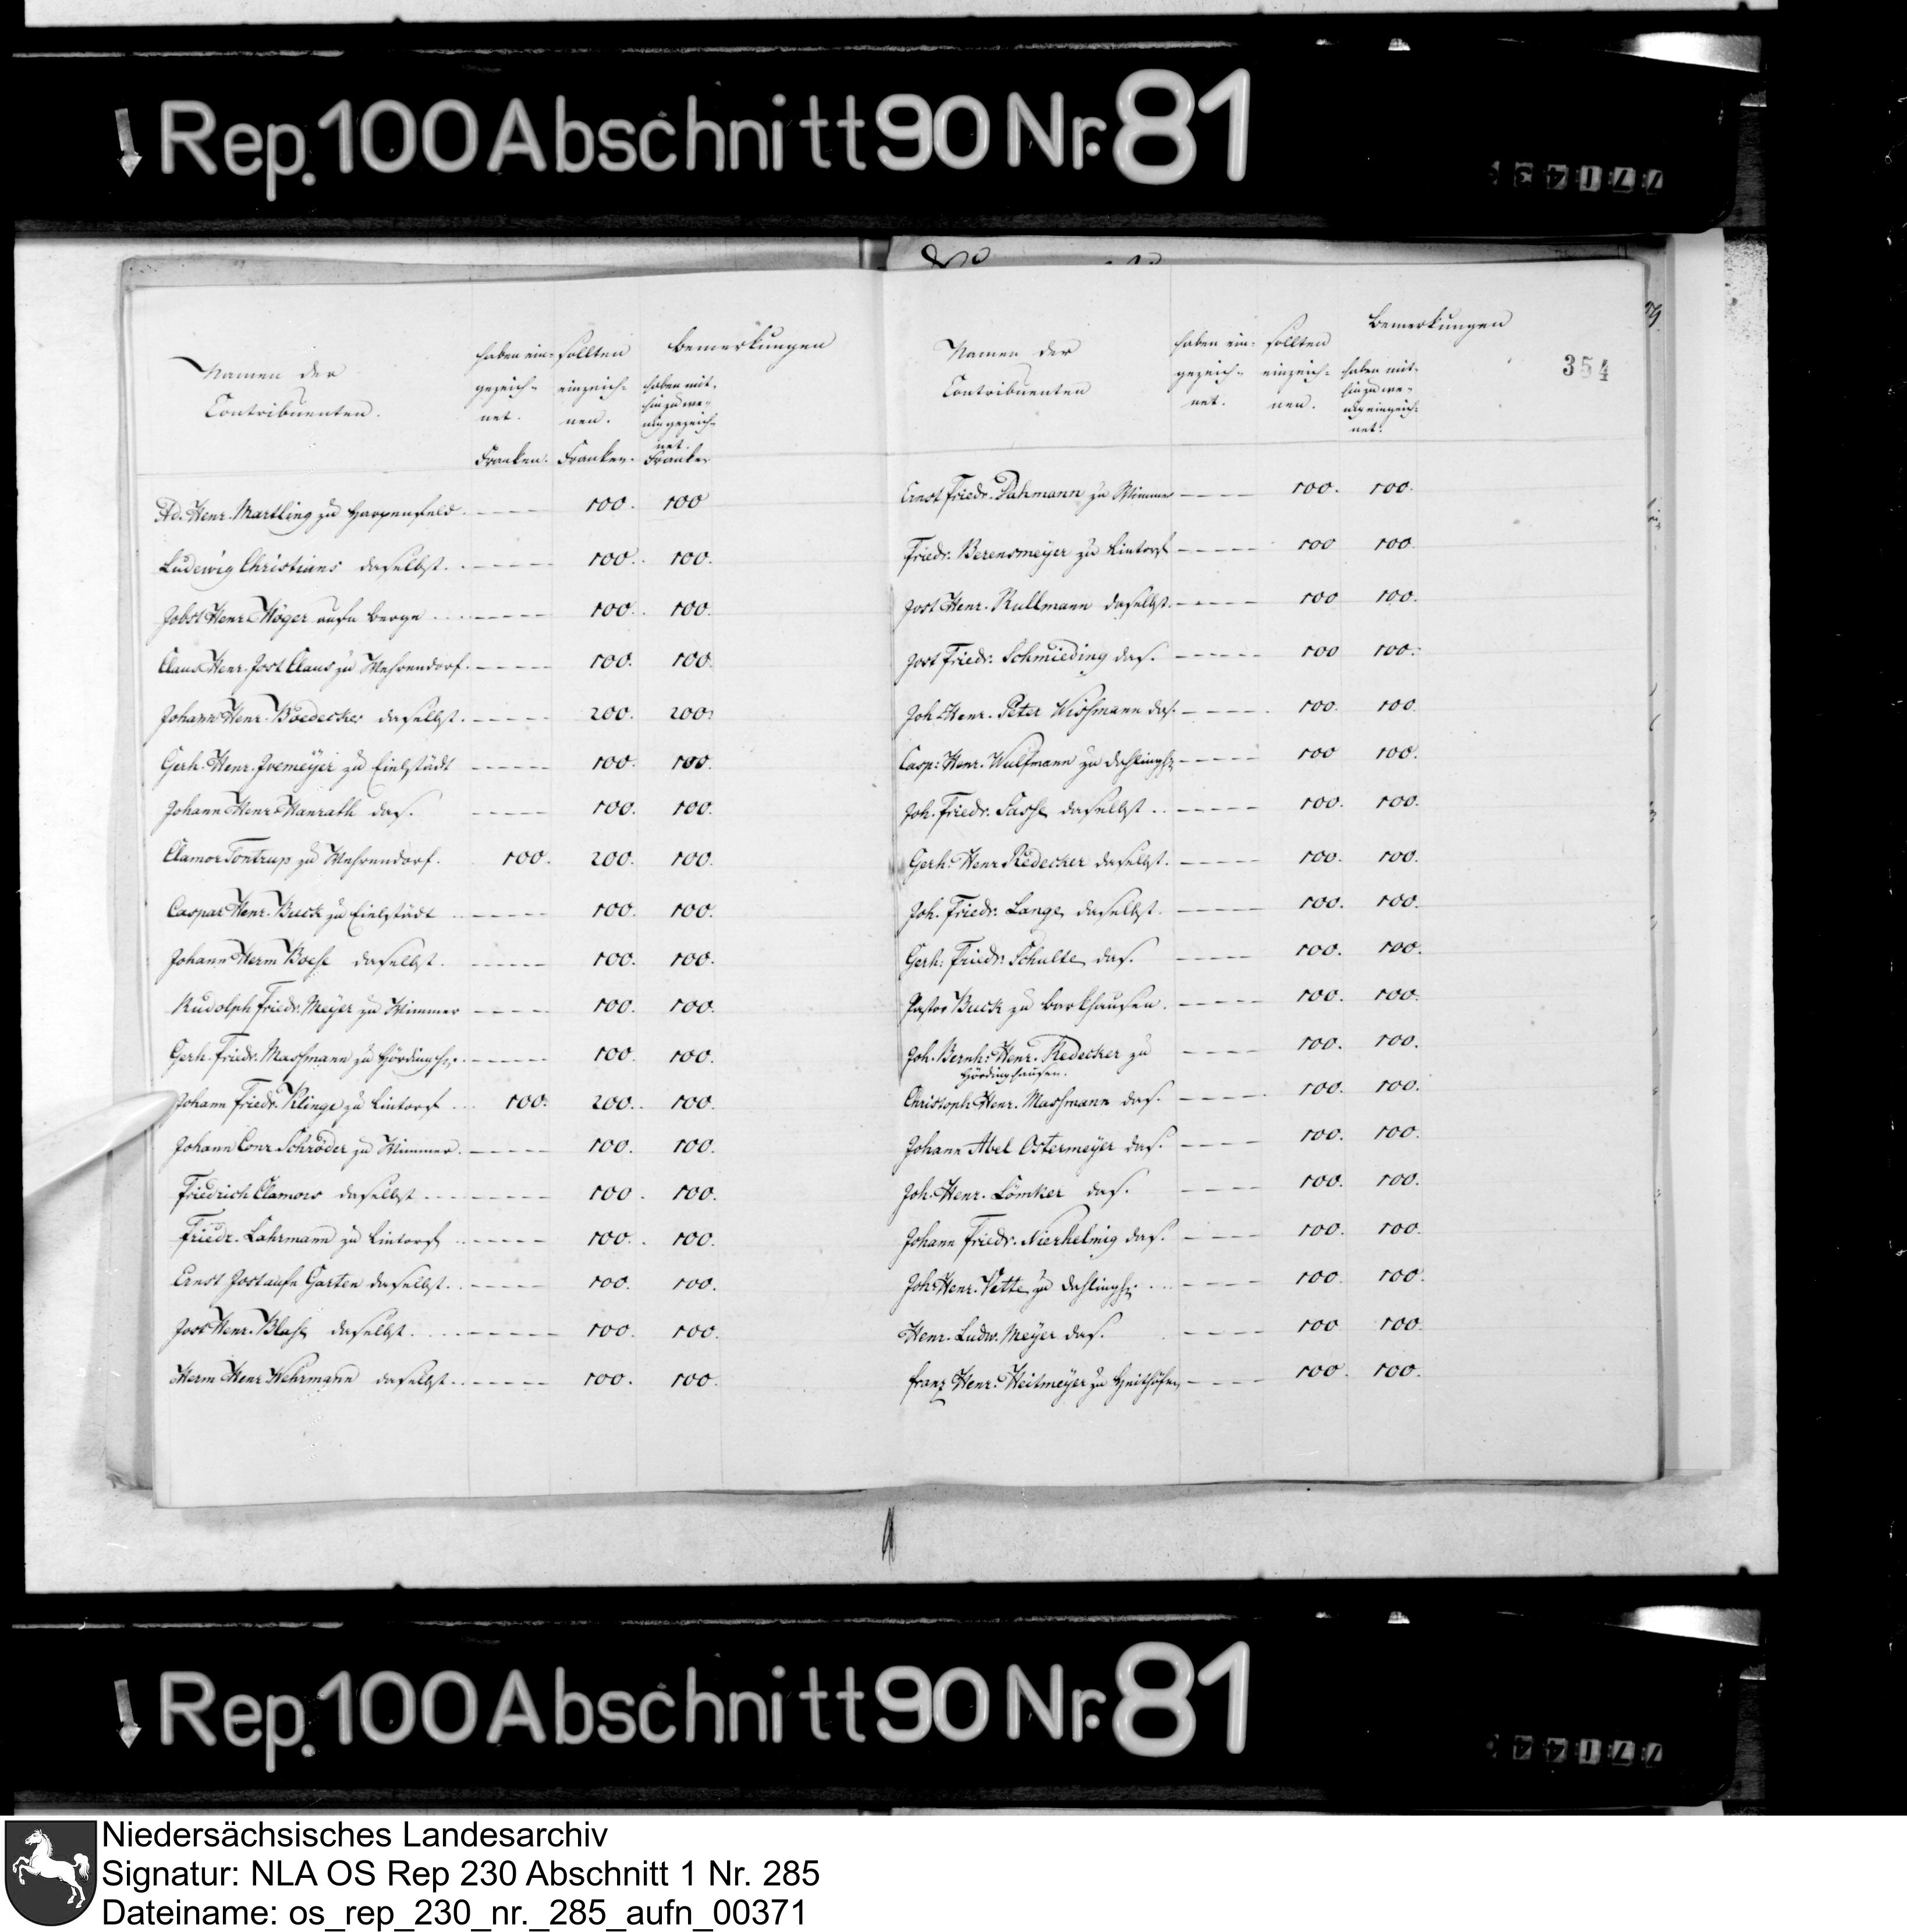 Rep. 100 Abschnitt 90 Nr. 81
354
Namen der Contribuenten. haben ein= gezeich= net. Franken. sollten einzeich= nen. Franken. Bemerkungen haben mit= hin zu we= nig gezeich= net. Franken
Ad. Henr. Martling zu Harpenfeld. 100. 100
Ludewig Christians daselbst. 100. 100.
Jobst Henr. Höger aufn Berge 100. 100.
Claus Henr. Jost Claus zu Wehrendorf. 100. 100.
Johann Henr. Boedecker daselbst. 200. 200.
Gerh. Henr. Ivemeyer zu Eielstädt 100. 100.
Johann Henr. Hanrath das. 100. 100.
Clamor Tontrup zu Wehrendorf. 100. 200. 100.
Caspar Henr. Buck zu Eielstädt 100. 100.
Johann Herm Boese daselbst. 100. 100.
Rudolph Friedr. Meyer zu Wimmer 100. 100.
Gerh. Friedr. Massmann zu Hördinghs. 100. 100.
Johann Friedr. Klinge zu Lintorf 100. 200. 100.
Johann Conr Schröder zu Wimmer. 100. 100.
Friedrich Clamors daselbst 100. 100.
Friedr. Lahrmann zu Lintorf 100. 100.
Ernst Jost aufn Garten daselbst. 100. 100.
Jost Henr. Blase daselbst. 100. 100.
Herm Henr Wehrmann daselbst. 100. 100.
Namen der Contribuenten haben ein= gezeich= net. sollten einzeich= nen. Bemerkungen haben mit= hin zu we= nig eingezeich= net.
Ernst Friedr. Dahmann zu Wimmer 100. 100.
Friedr. Berensmeyer zu Lintorf 100 100.
Jost Henr. Kullmann daselbst. 100 100.
Jost Friedr. Schmieding das. 100 100.
Joh. Henr. Peter Wissmann das. 100. 100.
Casp: Henr. Wulfmann zu Dahlinghs. 100 100.
Joh. Friedr. Sasse daselbst 100. 100.
Gerh: Henr Redecker daselbst. 100. 100.
Joh. Friedr. Lange daselbst. 100. 100.
Gerh: Friedr: Schulte das. 100. 100.
Pastor Buck zu Barkhausen. 100. 100.
Joh. Bernh: Henr. Redecker zu 100. 100.
Hördinghausen.
Christoph Henr. Massmann das. 100. 100.
Johann Abel Ostermeyer das. 100. 100.
Joh. Henr. Lömker das. 100. 100.
Johann Friedr. Nierhelmig das. 100. 100.
Joh Henr. Vette zu Dahlinghs. 100. 100.
Henr. Ludw. Meyer das. 100 100.
Franz Henr. Heitmeyer zu Heithöfen 100. 100.
Rep. 100 Abschnitt 90 Nr. 81
Niedersächsisches Landesarchiv
Signatur: NLA OS Rep 230 Abschnitt 1 Nr. 285
Dateiname: os_rep_230_nr._285_aufn_00371